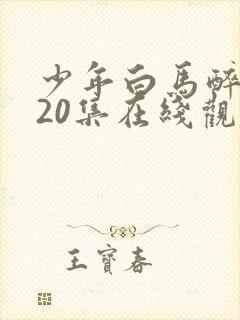 少年白马醉
20集在綫觀
王寶春